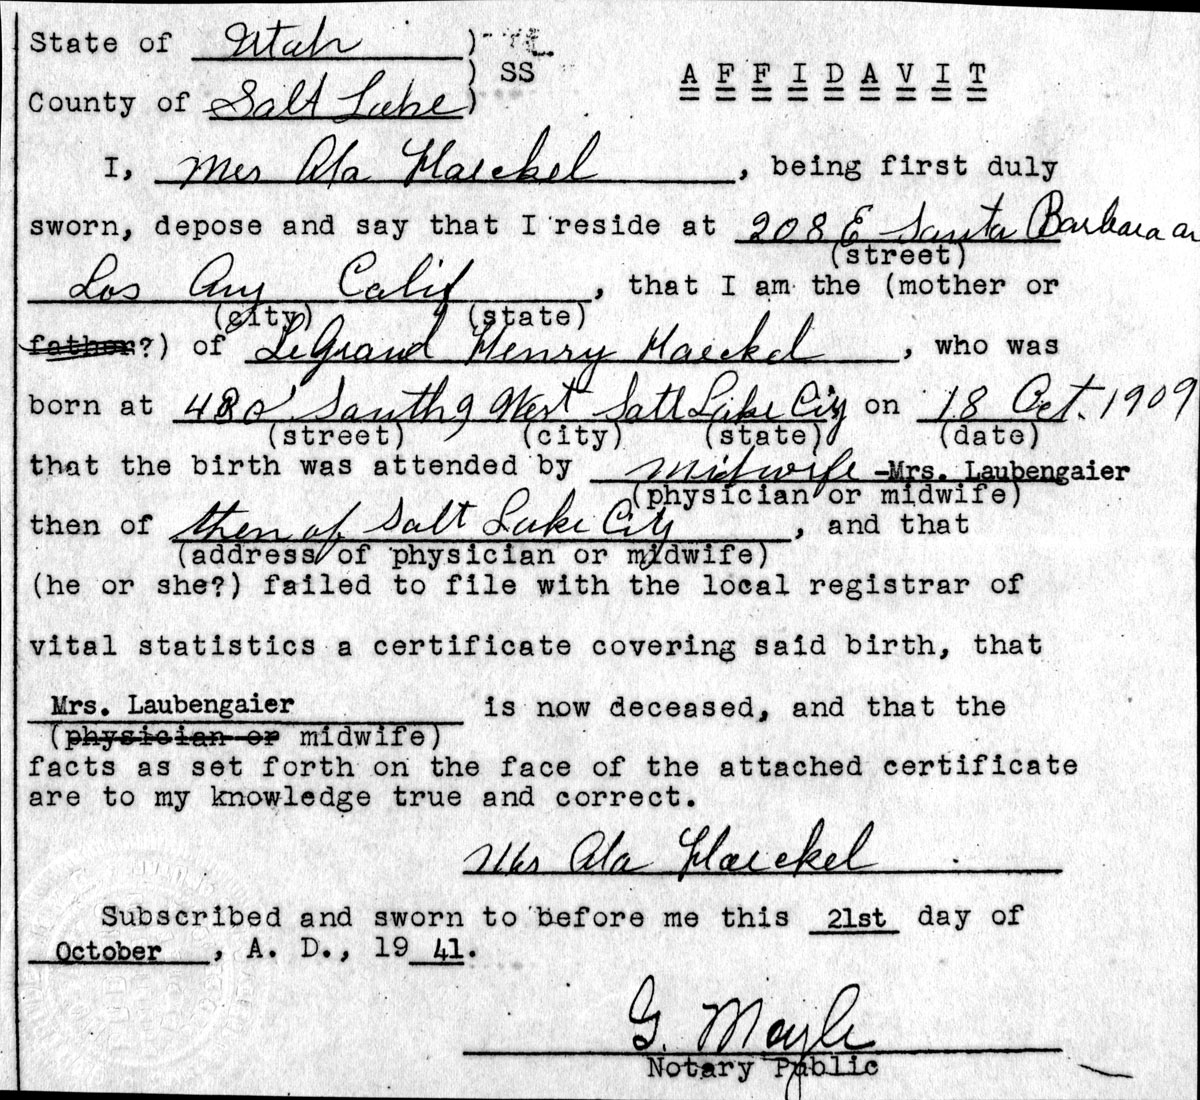 State of Utah )
) SS A F F I D A V I T
County of Salt Lake )
I, Mrs Ada Haeckel, being first duly
sworn, depose and say that I reside at 208 E Santa Barbara av
(street)
Los Ang Calif, that I am the (mother or
(city) (state)
father?) of LeGrand Henry Haeckel, who was
born at 480 South 9 West Salt Lake City on 18 Oct. 1909
(street) (city) (state) (date)
that the birth was attended by midwife -Mrs. Laubengaier
(physician or midwife)
then of then of Salt Lake City, and that
(address of physician or midwife)
(he or she?) failed to file with the local registrar of
vital statistics a certificate covering said birth, that
Mrs. Laubengaier is now deceased, and that the
(physician or midwife)
facts as set forth on the face of the attached certificate
are to my knowledge true and correct.
Mrs Ada Haeckel
Subscribed and sworn to before me this 21st day of
October, A. D., 19 41.
G. Moyle
Notary Public